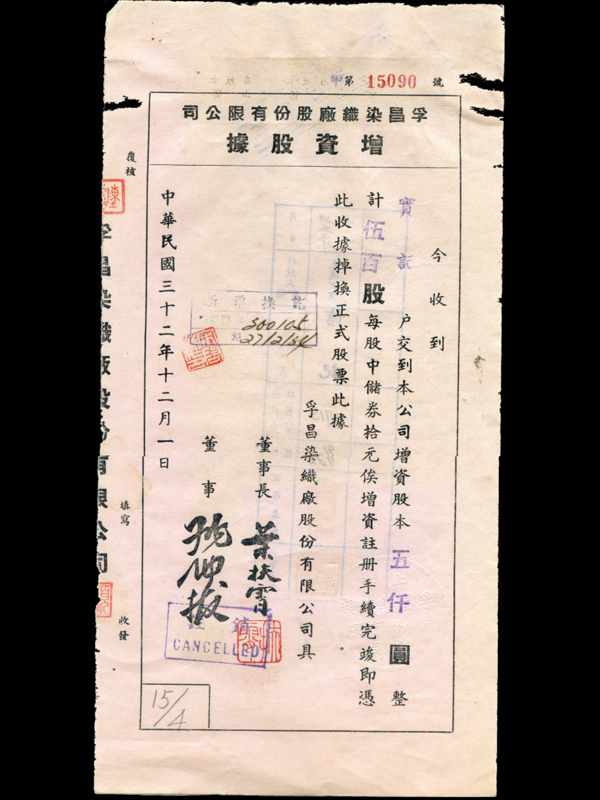 第 15090 號
孚昌染織廠股份有限公司
增資股據
今收到
寶記 户交到本公司增資股本 五仟 圓整
計 伍百 股每股中儲券拾元俟增資註册手續完竣即憑
此收據掉換正式股票此據
孚昌染織廠股份有限公司具
董事長 葉扶霄
董事
中華民國三十二年十二月一日
300105
27/2/34
CANCELLED
覆核
填寫
收發
孚昌染織廠股份有限公司
15/4